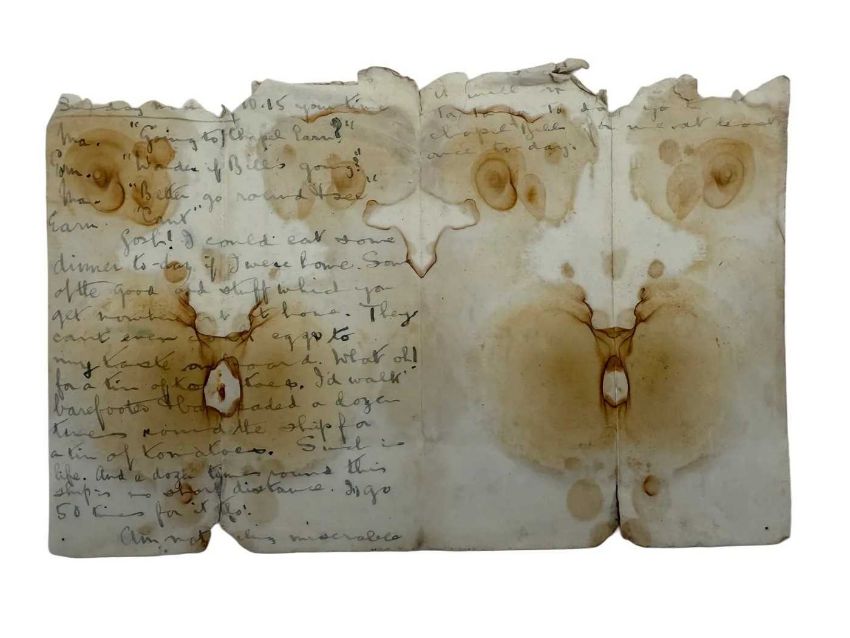 Sunday 10.15 your time
Ma. "Going to Chapel Earn?"
Earn. "Wonder if Bill's going?"
Ma. "Better go round & see"
Earn. "Cant"
Gosh! I could eat some
dinner to-day if I were home. Some
of the good old stuff which you
get nowhere but at home. They
cant even eggs to
my taste on board. What oh!
for a tin of tomatoes. I'd walk
barefooted & bareheaded a dozen
times round the ship for
a tin of tomatoes. Such is
life. And a dozen times round this
ship is no short distance. I'd go
50 times for it too!
Am not feeling miserable
it will
to day
chapel Bill for me at least
once to-day.